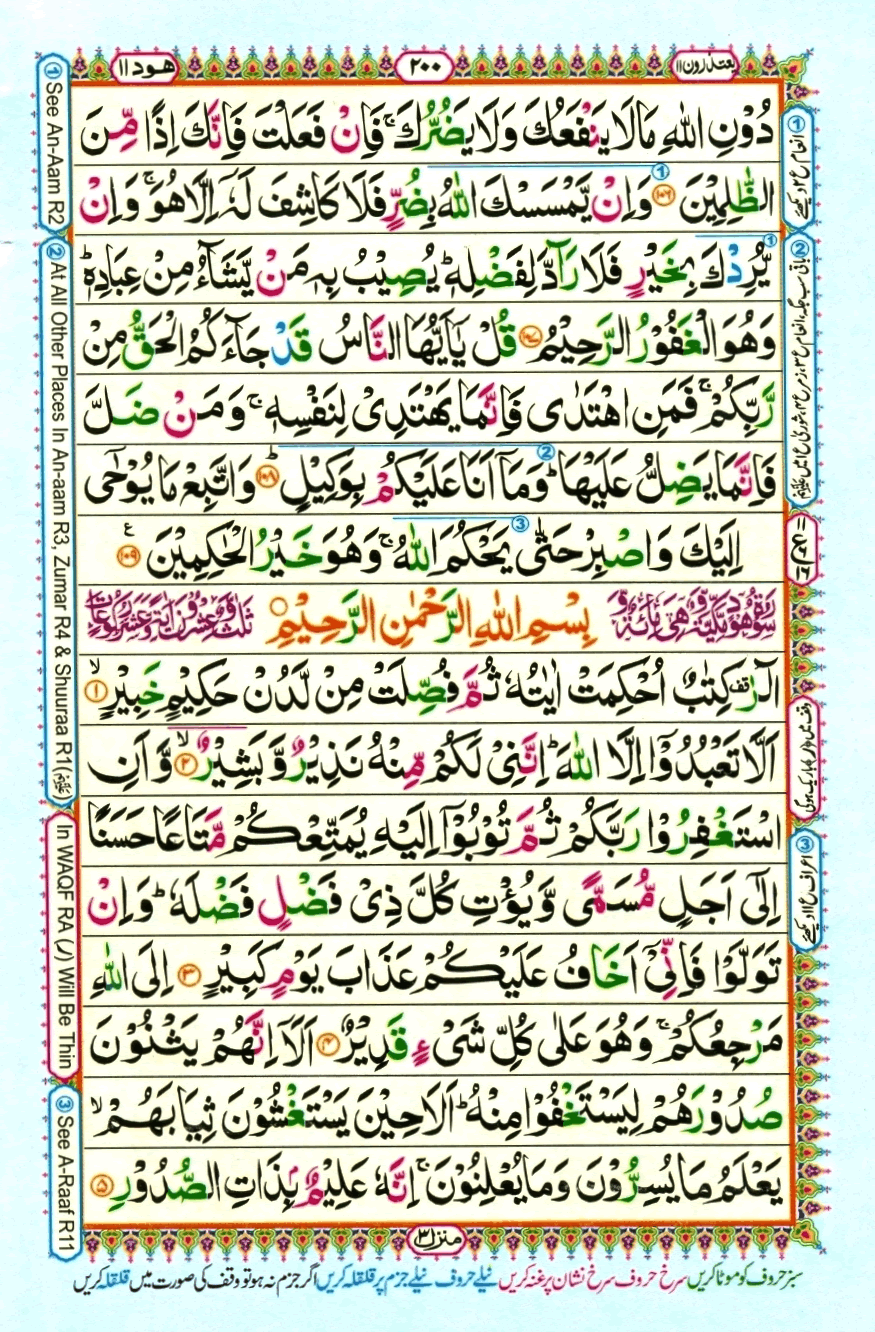 يعتذرون ١١
٢٠٠
هود ١١
دُوْنِ اللّٰهِ مَا لَا يَنْفَعُكَ وَلَا يَضُرُّكَ ۚ فَاِنْ فَعَلْتَ فَاِنَّكَ اِذًا مِّنَ
الظّٰلِمِيْنَ ﴿١٠٦﴾ وَاِنْ يَّمْسَسْكَ اللّٰهُ بِضُرٍّ فَلَا كَاشِفَ لَهٗۤ اِلَّا هُوَ ۚ وَاِنْ
يُّرِدْكَ بِخَيْرٍ فَلَا رَآدَّ لِفَضْلِهٖ ؕ يُصِيْبُ بِهٖ مَنْ يَّشَآءُ مِنْ عِبَادِهٖ ؕ
وَهُوَ الْغَفُوْرُ الرَّحِيْمُ ﴿١٠٧﴾ قُلْ يٰۤاَيُّهَا النَّاسُ قَدْ جَآءَكُمُ الْحَقُّ مِنْ
رَّبِّكُمْ ۚ فَمَنِ اهْتَدٰى فَاِنَّمَا يَهْتَدِىْ لِنَفْسِهٖ ۚ وَمَنْ ضَلَّ
فَاِنَّمَا يَضِلُّ عَلَيْهَا ؕ وَمَاۤ اَنَا عَلَيْكُمْ بِوَكِيْلٍ ؕ ﴿١٠٨﴾ وَاتَّبِعْ مَا يُوْحٰۤى
اِلَيْكَ وَاصْبِرْ حَتّٰى يَحْكُمَ اللّٰهُ ۚ وَهُوَ خَيْرُ الْحٰكِمِيْنَ ﴿١٠٩﴾ ع
سُوْرَةُ هُوْدٍ مَكِّيَّةٌ وَّهِىَ مِائَةٌ وَّ
بِسْمِ اللّٰهِ الرَّحْمٰنِ الرَّحِيْمِ
ثَلٰثٌ وَّعِشْرُوْنَ اٰيَةً وَّعَشْرُ رُكُوْعَاتٍ
الٓرٰ قف كِتٰبٌ اُحْكِمَتْ اٰيٰتُهٗ ثُمَّ فُصِّلَتْ مِنْ لَّدُنْ حَكِيْمٍ خَبِيْرٍ ۙ ﴿١﴾
اَلَّا تَعْبُدُوْۤا اِلَّا اللّٰهَ ؕ اِنَّنِىْ لَكُمْ مِّنْهُ نَذِيْرٌ وَّبَشِيْرٌ ۙ ﴿٢﴾ وَّاَنِ
اسْتَغْفِرُوْا رَبَّكُمْ ثُمَّ تُوْبُوْۤا اِلَيْهِ يُمَتِّعْكُمْ مَّتَاعًا حَسَنًا
اِلٰۤى اَجَلٍ مُّسَمًّى وَّيُؤْتِ كُلَّ ذِىْ فَضْلٍ فَضْلَهٗ ؕ وَاِنْ
تَوَلَّوْا فَاِنِّىْۤ اَخَافُ عَلَيْكُمْ عَذَابَ يَوْمٍ كَبِيْرٍ ﴿٣﴾ اِلَى اللّٰهِ
مَرْجِعُكُمْ ۚ وَهُوَ عَلٰى كُلِّ شَىْءٍ قَدِيْرٌ ﴿٤﴾ اَلَاۤ اِنَّهُمْ يَثْنُوْنَ
صُدُوْرَهُمْ لِيَسْتَخْفُوْا مِنْهُ ؕ اَلَا حِيْنَ يَسْتَغْشُوْنَ ثِيَابَهُمْ ۙ
يَعْلَمُ مَا يُسِرُّوْنَ وَمَا يُعْلِنُوْنَ ۚ اِنَّهٗ عَلِيْمٌۢ بِذَاتِ الصُّدُوْرِ ﴿٥﴾
منزل ٣
سبز حروف کو موٹا کریں سرخ حروف سرخ نشان پر غنہ کریں نیلے حروف نیلے جزم پر قلقلہ کریں اگر جزم نہ ہو تو وقف کی صورت میں قلقلہ کریں
① See An-Aam R2
② At All Other Places In An-aam R3, Zumar R4 & Shuuraa R1
In WAQF RA (ر) Will Be Thin
③ See A-Raaf R11